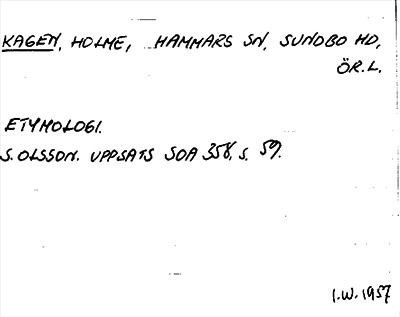 KAGEN, HOLME, HAMMARS SN, SUNDBO HD,
ÖR.L.
ETYMOLOGI.
S. OLSSON. UPPSATS SOA 358, S. 59.
I.W. 1957